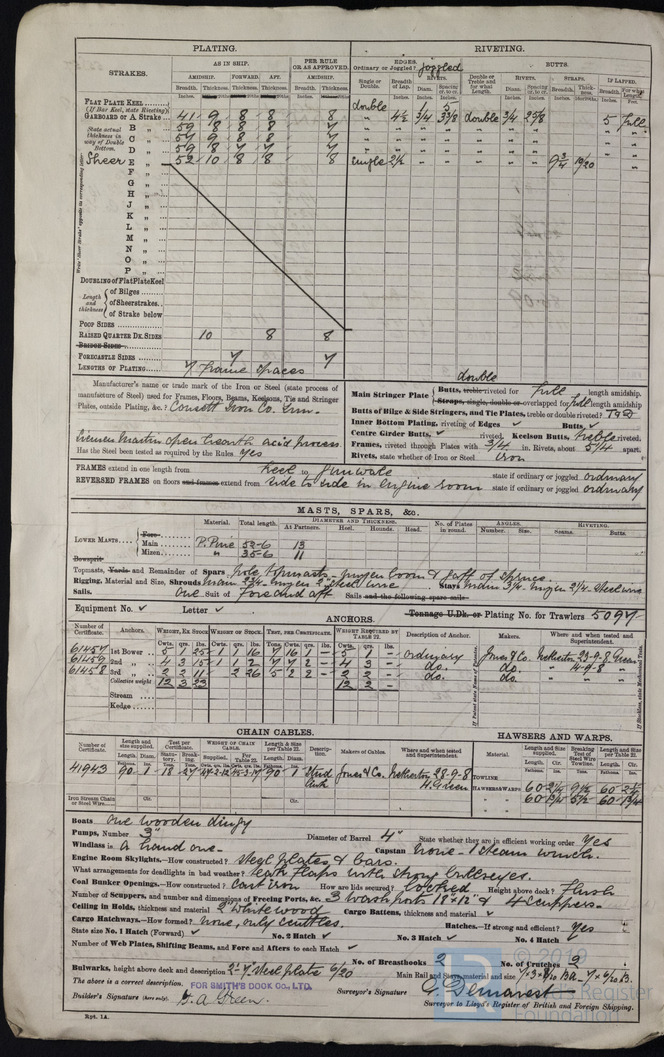 PLATING. RIVETING.
STRAKES. AS IN SHIP. PER RULE OR AS APPROVED. EDGES. Ordinary or Joggled? joggled BUTTS.
AMIDSHIP. FORWARD. AFT. AMIDSHIP. Single or Double. Breadth of Lap. RIVETS. Double or Treble and for what Length. RIVETS. STRAPS. IF LAPPED.
Breadth. Thickness. Thickness. Thickness. Breadth. Thickness. Diam. Spacing cr. to cr. Diam. Spacing cr. to cr. Breadth. Thickness. Breadth. For what Length.
FLAT PLATE KEEL
(If Bar Keel, state Riveting) double
GARBOARD or A Strake 41 9 8 8 8 " 4½ 3/4 3 3/8 double 3/4 2 5/8 5 full
State actual thickness in way of Double Bottom. B " 59 8 8 8 7
C " 9 8 8 7
D " 59 8 7 7 7
Sheer E " 52 10 8 8 8 single 2½ 9 3/4 10/20
F "
G "
H "
J "
K "
L "
M "
N "
O "
P "
DOUBLING of Flat Plate Keel
Length and thickness of Bilges
of Sheerstrakes
of Strake below
POOP SIDES
RAISED QUARTER DK. SIDES 10 8 8
BRIDGE SIDES
FORECASTLE SIDES 7 7
LENGTHS OF PLATING 7 frame spaces
Manufacturer's name or trade mark of the Iron or Steel (state process of manufacture of Steel) used for Frames, Floors, Beams, Keelsons, Tie and Stringer Plates, outside Plating, &c.? Consett Iron Co. Lim.
Siemens Martin open hearth acid process
Has the Steel been tested as required by the Rules Yes
double
Main Stringer Plate Butts, treble riveted for full length amidship
Straps, single, double or overlapped for full length amidship
Butts of Bilge & Side Stringers, and Tie Plates, treble or double riveted? T & D
Inner Bottom Plating, riveting of Edges ✓ Butts ✓
Centre Girder Butts, ✓ riveted. Keelson Butts, treble riveted.
Frames, riveted through Plates with 3/4 in. Rivets, about 5 1/4 apart.
Rivets, state whether of Iron or Steel Iron
FRAMES extend in one length from keel to gunwale state if ordinary or joggled ordinary
REVERSED FRAMES on floors and frames extend from side to side in engine room state if ordinary or joggled ordinary
MASTS, SPARS, &c.
Material. Total length. DIAMETER AND THICKNESS. No. of Plates in round. ANGLES. RIVETING.
At Partners. Heel. Hounds. Head. Number. Size. Seams. Butts.
LOWER MASTS Fore
Main P. Pine 52-6 13
Mizen " 35-6 11
Bowsprit
Topmasts, Yards and Remainder of Spars pole topmasts - mizen boom & gaff of spruce.
Rigging, Material and Size, Shrouds main 2 3/4 mizen 2" steel wire. Stays main 3 1/4 mizen 2 1/4 steel wire
Sails. One Suit of fore and aft Sails and the following spare sails
Equipment No. ✓ Letter ✓ Tonnage U.Dk. or Plating No. for Trawlers 5097
ANCHORS.
Number of Certificate. Anchors. WEIGHT, EX STOCK WEIGHT OF STOCK TEST, PER CERTIFICATE. WEIGHT REQUIRED BY TABLE 22. Description of Anchor. Makers. Where and when tested and Superintendent.
61457 1st Bower 5 1 25 1 1 16 7 16 1 - 5 1 - ordinary Jones & Co. Netherton 23-9-8 Green
61459 2nd " 4 3 15 1 1 2 7 7 2 - 4 3 - do. do. " 14-9-8 "
61458 3rd " 2 2 11 - 2 26 5 2 2 - 2 2 - do. do. " " "
Collective weight 12 3 23 12 2 -
Stream
Kedge
CHAIN CABLES. HAWSERS AND WARPS.
Number of Certificate. Length and size supplied. Test per Certificate. WEIGHT OF CHAIN CABLE. Length & size per Table 22. Description. Makers of Cables. Where and when tested and Superintendent. Material. Length and size supplied. Breaking Test of Steel Wire Towline. Length and size per Table 22.
41943 90 1 18 27 90 1 Stud Link Jones & Co. Netherton 28-9-8 H. Green
TOWLINE
HAWSERS & WARPS 60 2 1/4 9 1/2 60 2 1/4
" 60 1 3/4 5 1/2 60 1 3/4
Iron Stream Chain or Steel Wire
Boats one wooden dingy
Pumps, Number 3 Diameter of Barrel 4" State whether they are in efficient working order Yes
Windlass is a hand one - Capstan none - 1 steam winch.
Engine Room Skylights.—How constructed? steel plates & bars.
What arrangements for deadlights in bad weather? teak flaps with strong bullseyes.
Coal Bunker Openings.—How constructed? cast iron How are lids secured? locked Height above deck? flush
Number of Scuppers, and number and dimensions of Freeing Ports, &c. 3 wash ports 18 × 12" & 4 scuppers.
Ceiling in Holds, thickness and material 2" whitewood Cargo Battens, thickness and material ✓
Cargo Hatchways.—How formed? none, only scuttles. Hatches.—If strong and efficient? Yes
State size No. 1 Hatch (Forward) ✓ No. 2 Hatch ✓ No. 3 Hatch ✓ No. 4 Hatch
Number of Web Plates, Shifting Beams, and Fore and Afters to each Hatch ✓
No. of Breasthooks 2 No. of Crutches 9
Bulwarks, height above deck and description 2'-7" steel plate 6/20 Main Rail and Stays, material and size
The above is a correct description. FOR SMITH'S DOCK CO., LTD.
Builder's Signature (here only). G. A. Green. Surveyor's Signature G. Demarest
Surveyor to Lloyd's Register of British and Foreign Shipping.
Rpt. 1A.
© 2019
Lloyd's Register
Foundation